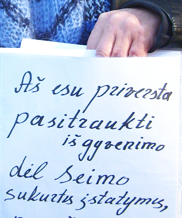 Aš esu priversta
pasitraukti
iš gyvenimo
dėl Seimo
sukurtus įstatymus,